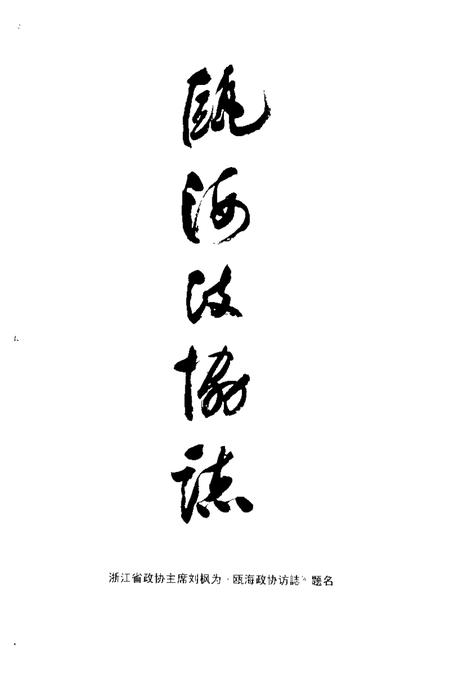 瓯海政协誌
浙江省政协主席刘枫为“瓯海政协访誌”题名